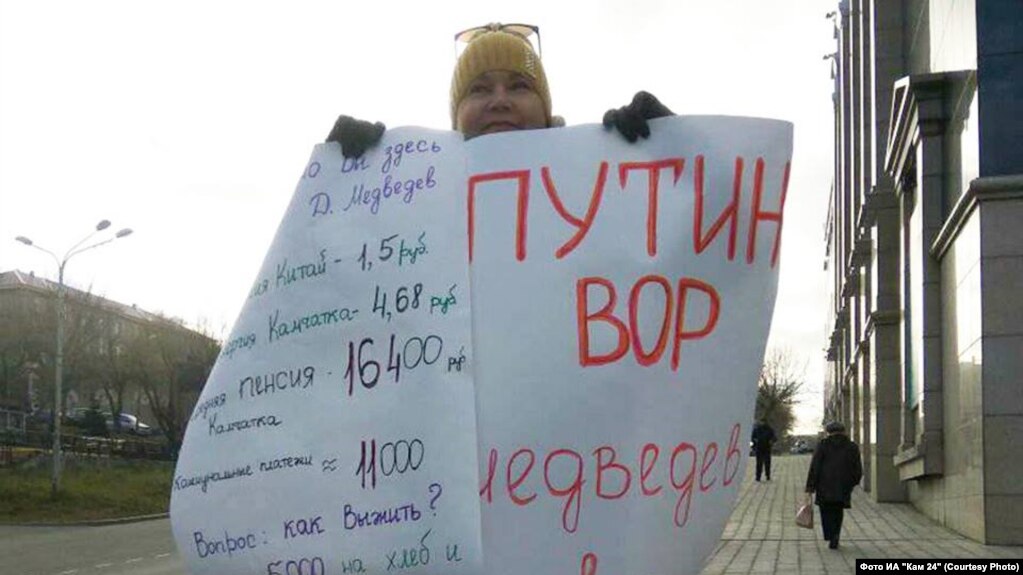 Вы здесь
Д. Медведев
Китай - 1,5 руб.
Камчатка - 4,68 руб
пенсия - 16400 руб
Камчатка
Коммунальные платежи ≈ 11000
Вопрос: как Выжить?
5000 на хлеб и
ПУТИН
ВОР
медведев
Фото ИА "Кам 24" (Courtesy Photo)